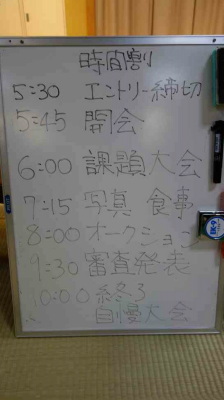 時間割
5:30 エントリー締切
5:45 開会
6:00 課題大会
7:15 写真 食事
8:00 オークション
9:30 審査発表
10:00 終わる
自慢大会